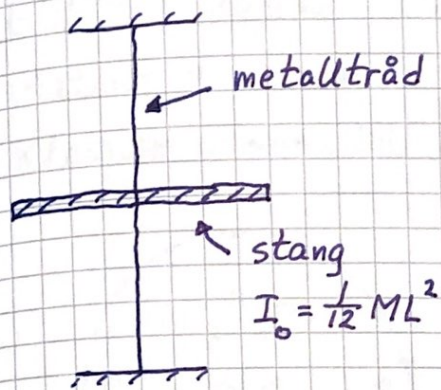 metalltråd
stang
I₀ = 1/12 ML²